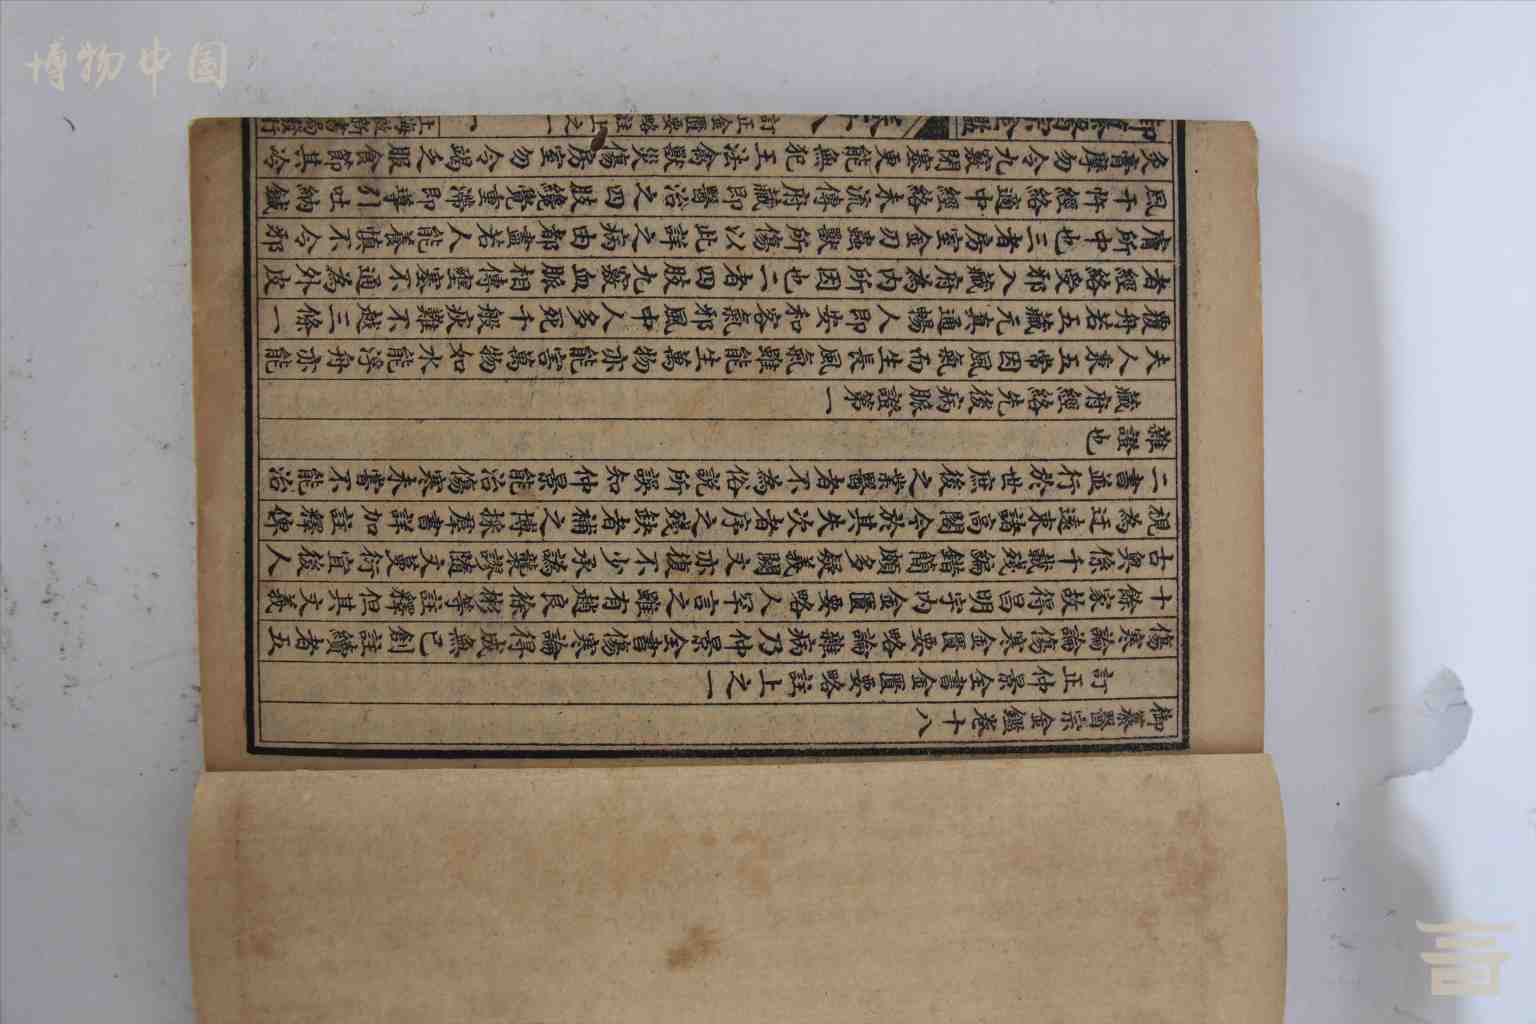 博物中国
御纂醫宗金鑑卷十八
訂正仲景全書金匱要略註上之一
傷寒論論傷寒金匱要略論雜病乃仲景全書傷寒論得成無己創註續者五
十餘家故得昌明宇內金匱要略人罕言之雖有趙良徐彬等註釋但其文義
古奧係千載殘編錯簡頗多疑義闕文亦復不少承譌襲謬隨文蔓衍宜後人
視為迂遠束諸高閣今於其失次者序之殘缺者補之博採群書詳加註釋俾
二書並行於世庶後之業醫者不為俗說所誤知仲景能治傷寒未嘗不能治
雜證也
藏府經絡先後病脈證第一
夫人秉五常因風氣而生長風氣雖能生萬物亦能害萬物如水能浮舟亦能
覆舟若五藏元真通暢人即安和客氣邪風中人多死千般疢難不越三條一
者經絡受邪入藏府為內所因也二者四肢九竅血脈相傳壅塞不通為外皮
膚所中也三者房室金刃蟲獸所傷以此詳之病由都盡若人能養慎不令邪
風干忤經絡適中經絡未流傳府藏即醫治之四肢纔覺重滯即導引吐納鍼
灸膏摩勿令九竅閉塞更能無犯王法禽獸災傷房室勿令竭之服食節其冷
御纂醫宗金鑑
卷十八
訂正金匱要略註上之一
一
上海啟新書局發行